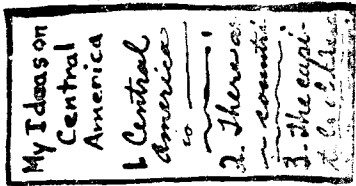 My Ideas on
Central
America
1. Central
America
is
2. There a
countri
3. The capi-